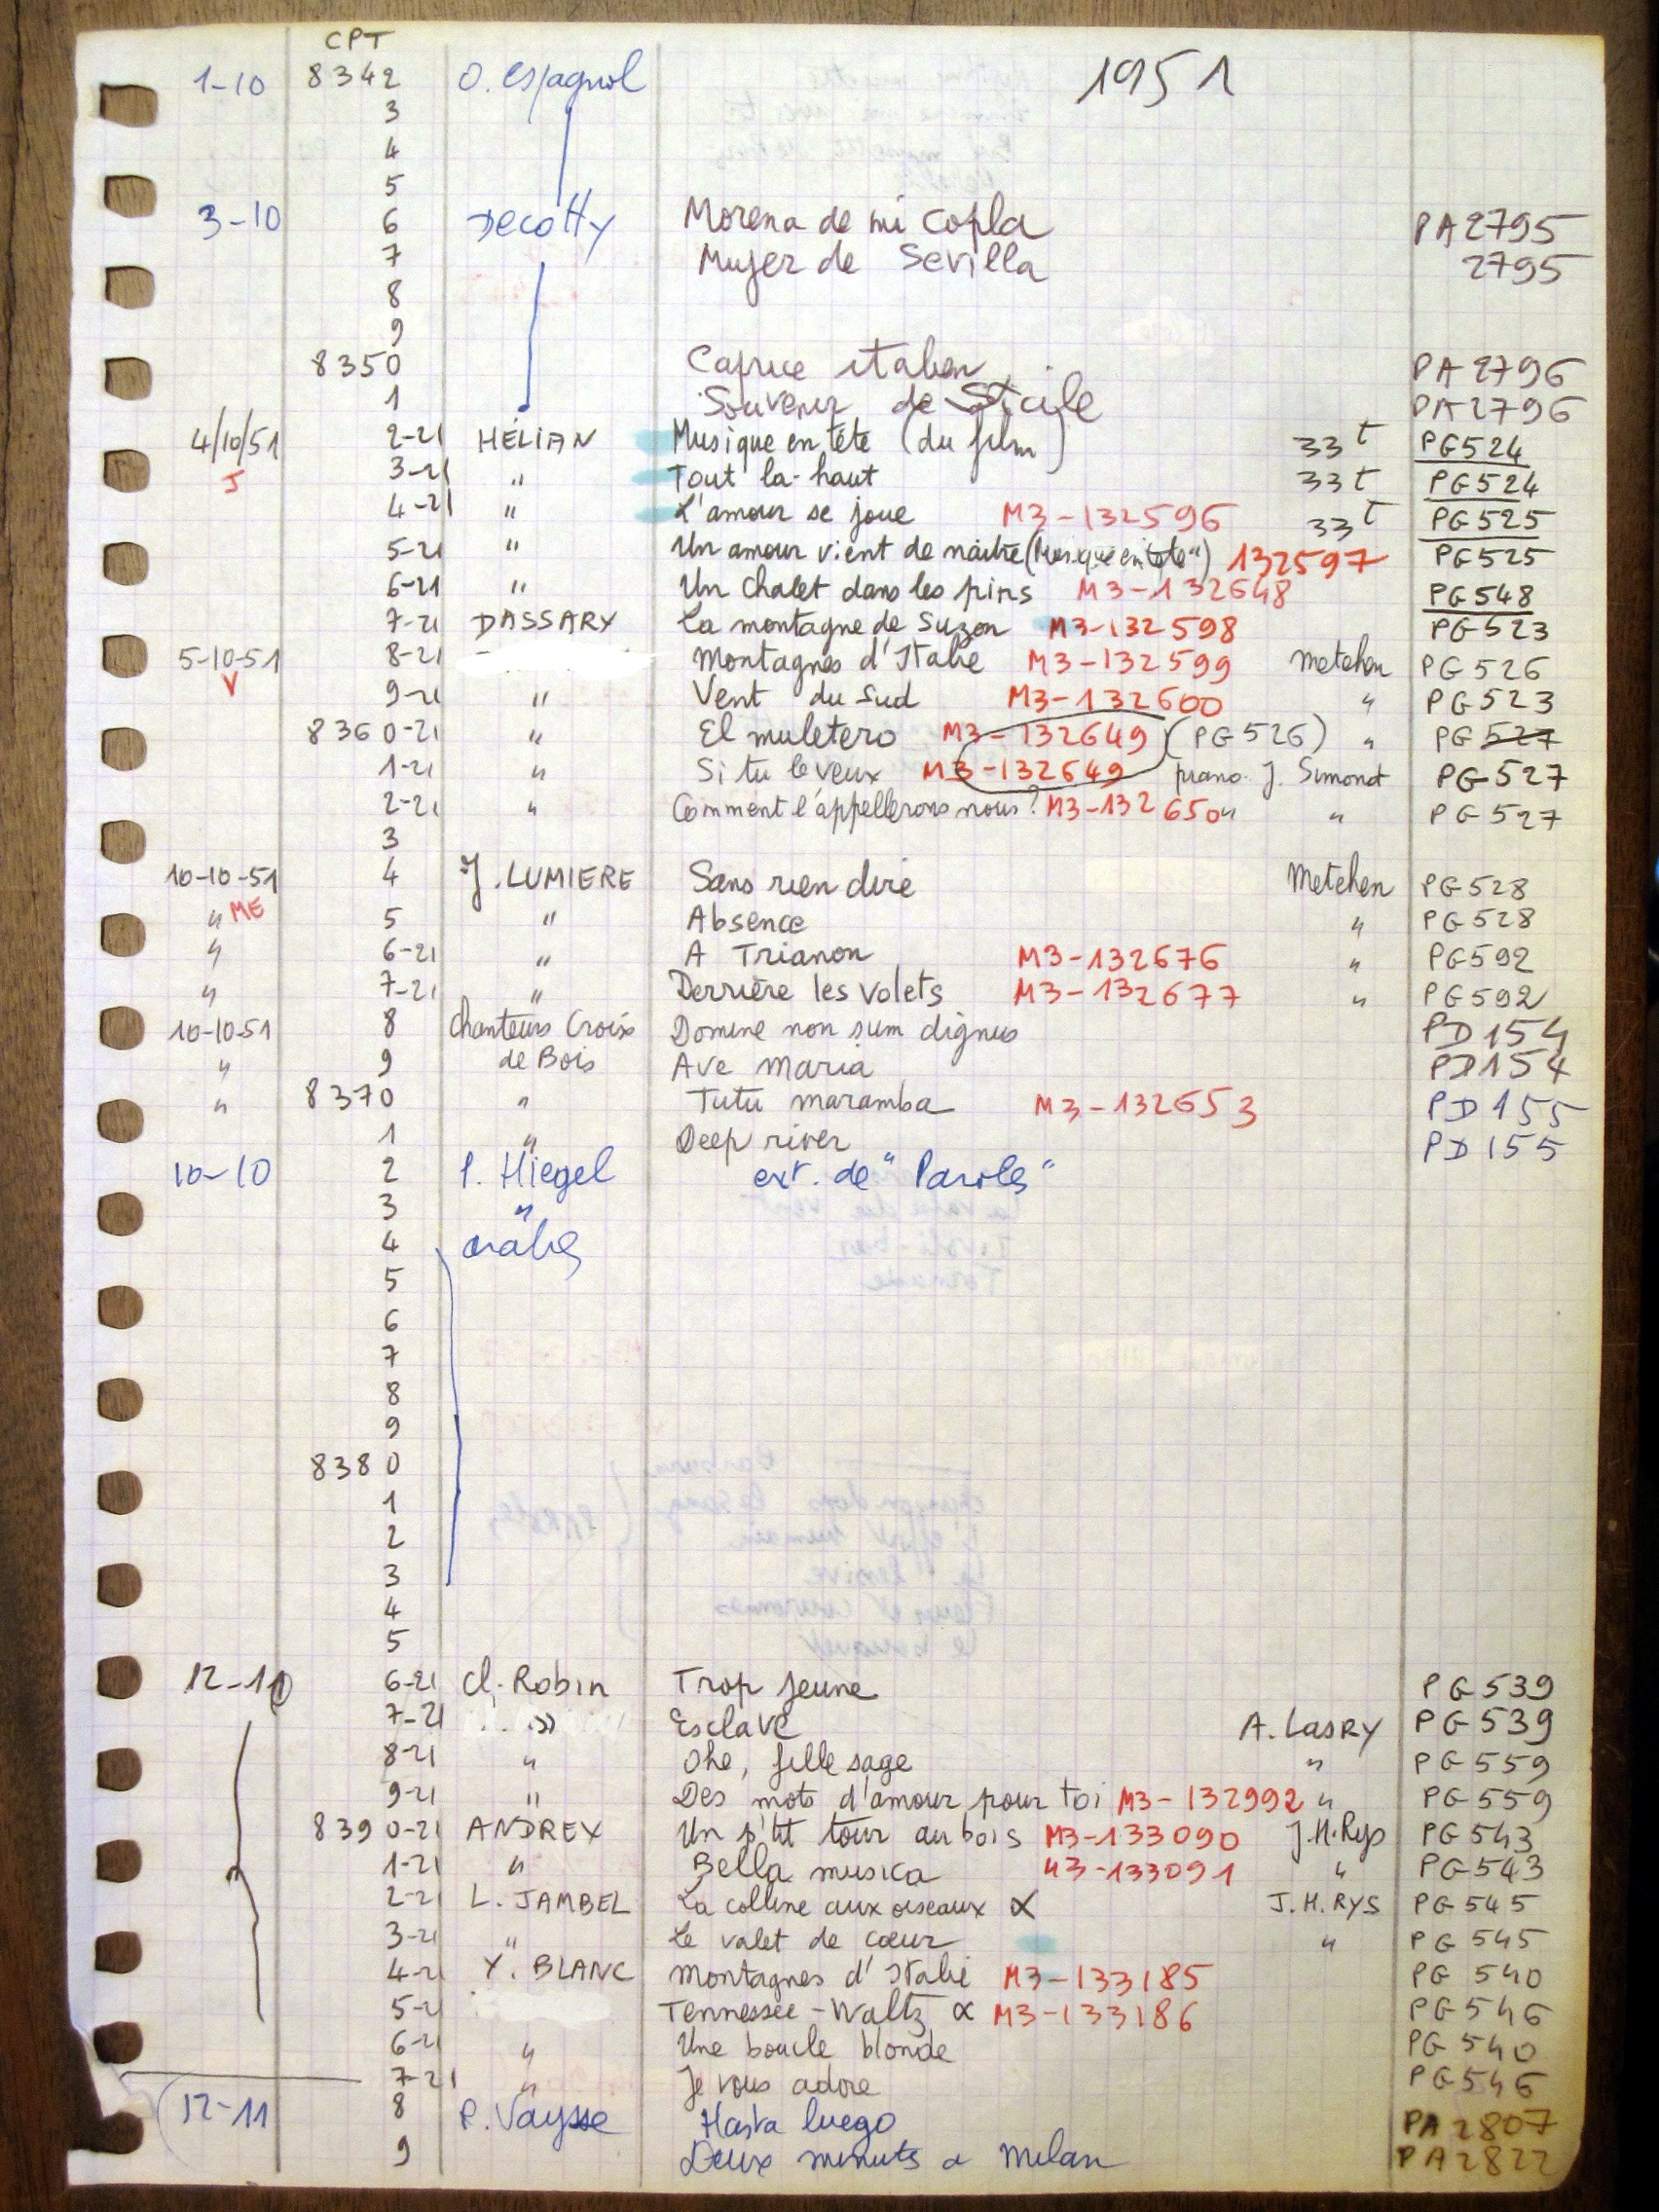 CPT
1-10 8342 O. Espagnol 1951
3
4
5
3-10 6 Decotty Morena de mi copla PA2795
7 Mujer de Sevilla 2795
8
9
8350 Caprice italien PA2796
1 Souvenir de Sicile PA2796
4/10/51 2-21 HÉLIAN Musique en tête (du film) 33t PG524
J 3-21 " Tout la-haut 33t PG524
4-21 " L'amour se joue M3-132596 33t PG525
5-21 " Un amour vient de naître (Musique en tête") 132597 PG525
6-21 " Un Chalet dans les pins M3-132648 PG548
7-21 DASSARY La montagne de Suzon M3-132598 PG523
5-10-51 8-21 Montagnes d'Italie M3-132599 Metehen PG526
V 9-21 " Vent du Sud M3-132600 " PG523
8360-21 " El muletero M3-132649 (PG526) " PG527
1-21 " Si tu le veux M3-132649 piano J. Simonot PG527
2-21 " Comment l'appellerons nous? M3-132650 " " PG527
3
10-10-51 4 J. LUMIERE Sans rien dire Metehen PG528
" ME 5 " Absence " PG528
" 6-21 " A Trianon M3-132676 " PG592
" 7-21 " Derrière les volets M3-132677 " PG592
10-10-51 8 Chanteurs Croix Domine non sum dignus PD154
" 9 de Bois Ave Maria PD154
" 8370 " Tutu maramba M3-132653 PD155
1 " Deep river PD155
10-10 2 P. Hiegel ext. de "Paroles"
3 "
4 arabes
5
6
7
8
9
8380
1
2
3
4
5
12-11 6-21 Cl. Robin Trop jeune PG539
7-21 " Esclave A. LASRY PG539
8-21 " Ohe, fille sage " PG559
9-21 " Des mots d'amour pour toi M3-132992 " PG559
8390-21 ANDREX Un p'tit tour au bois M3-133090 J.H.Rys PG543
1-21 " Bella musica M3-133091 " PG543
2-21 L. JAMBEL La colline aux oiseaux ∝ J.H.RYS PG545
3-21 " Le valet de cœur " PG545
4-21 Y. BLANC Montagnes d'Italie M3-133185 PG540
5-21 Tennessee-Waltz ∝ M3-133186 PG546
6-21 " Une boucle blonde PG540
7-21 " Je vous adore PG546
12-11 8 P. Vaysse Hasta luego PA2807
9 Deux minuts a Milan PA2822